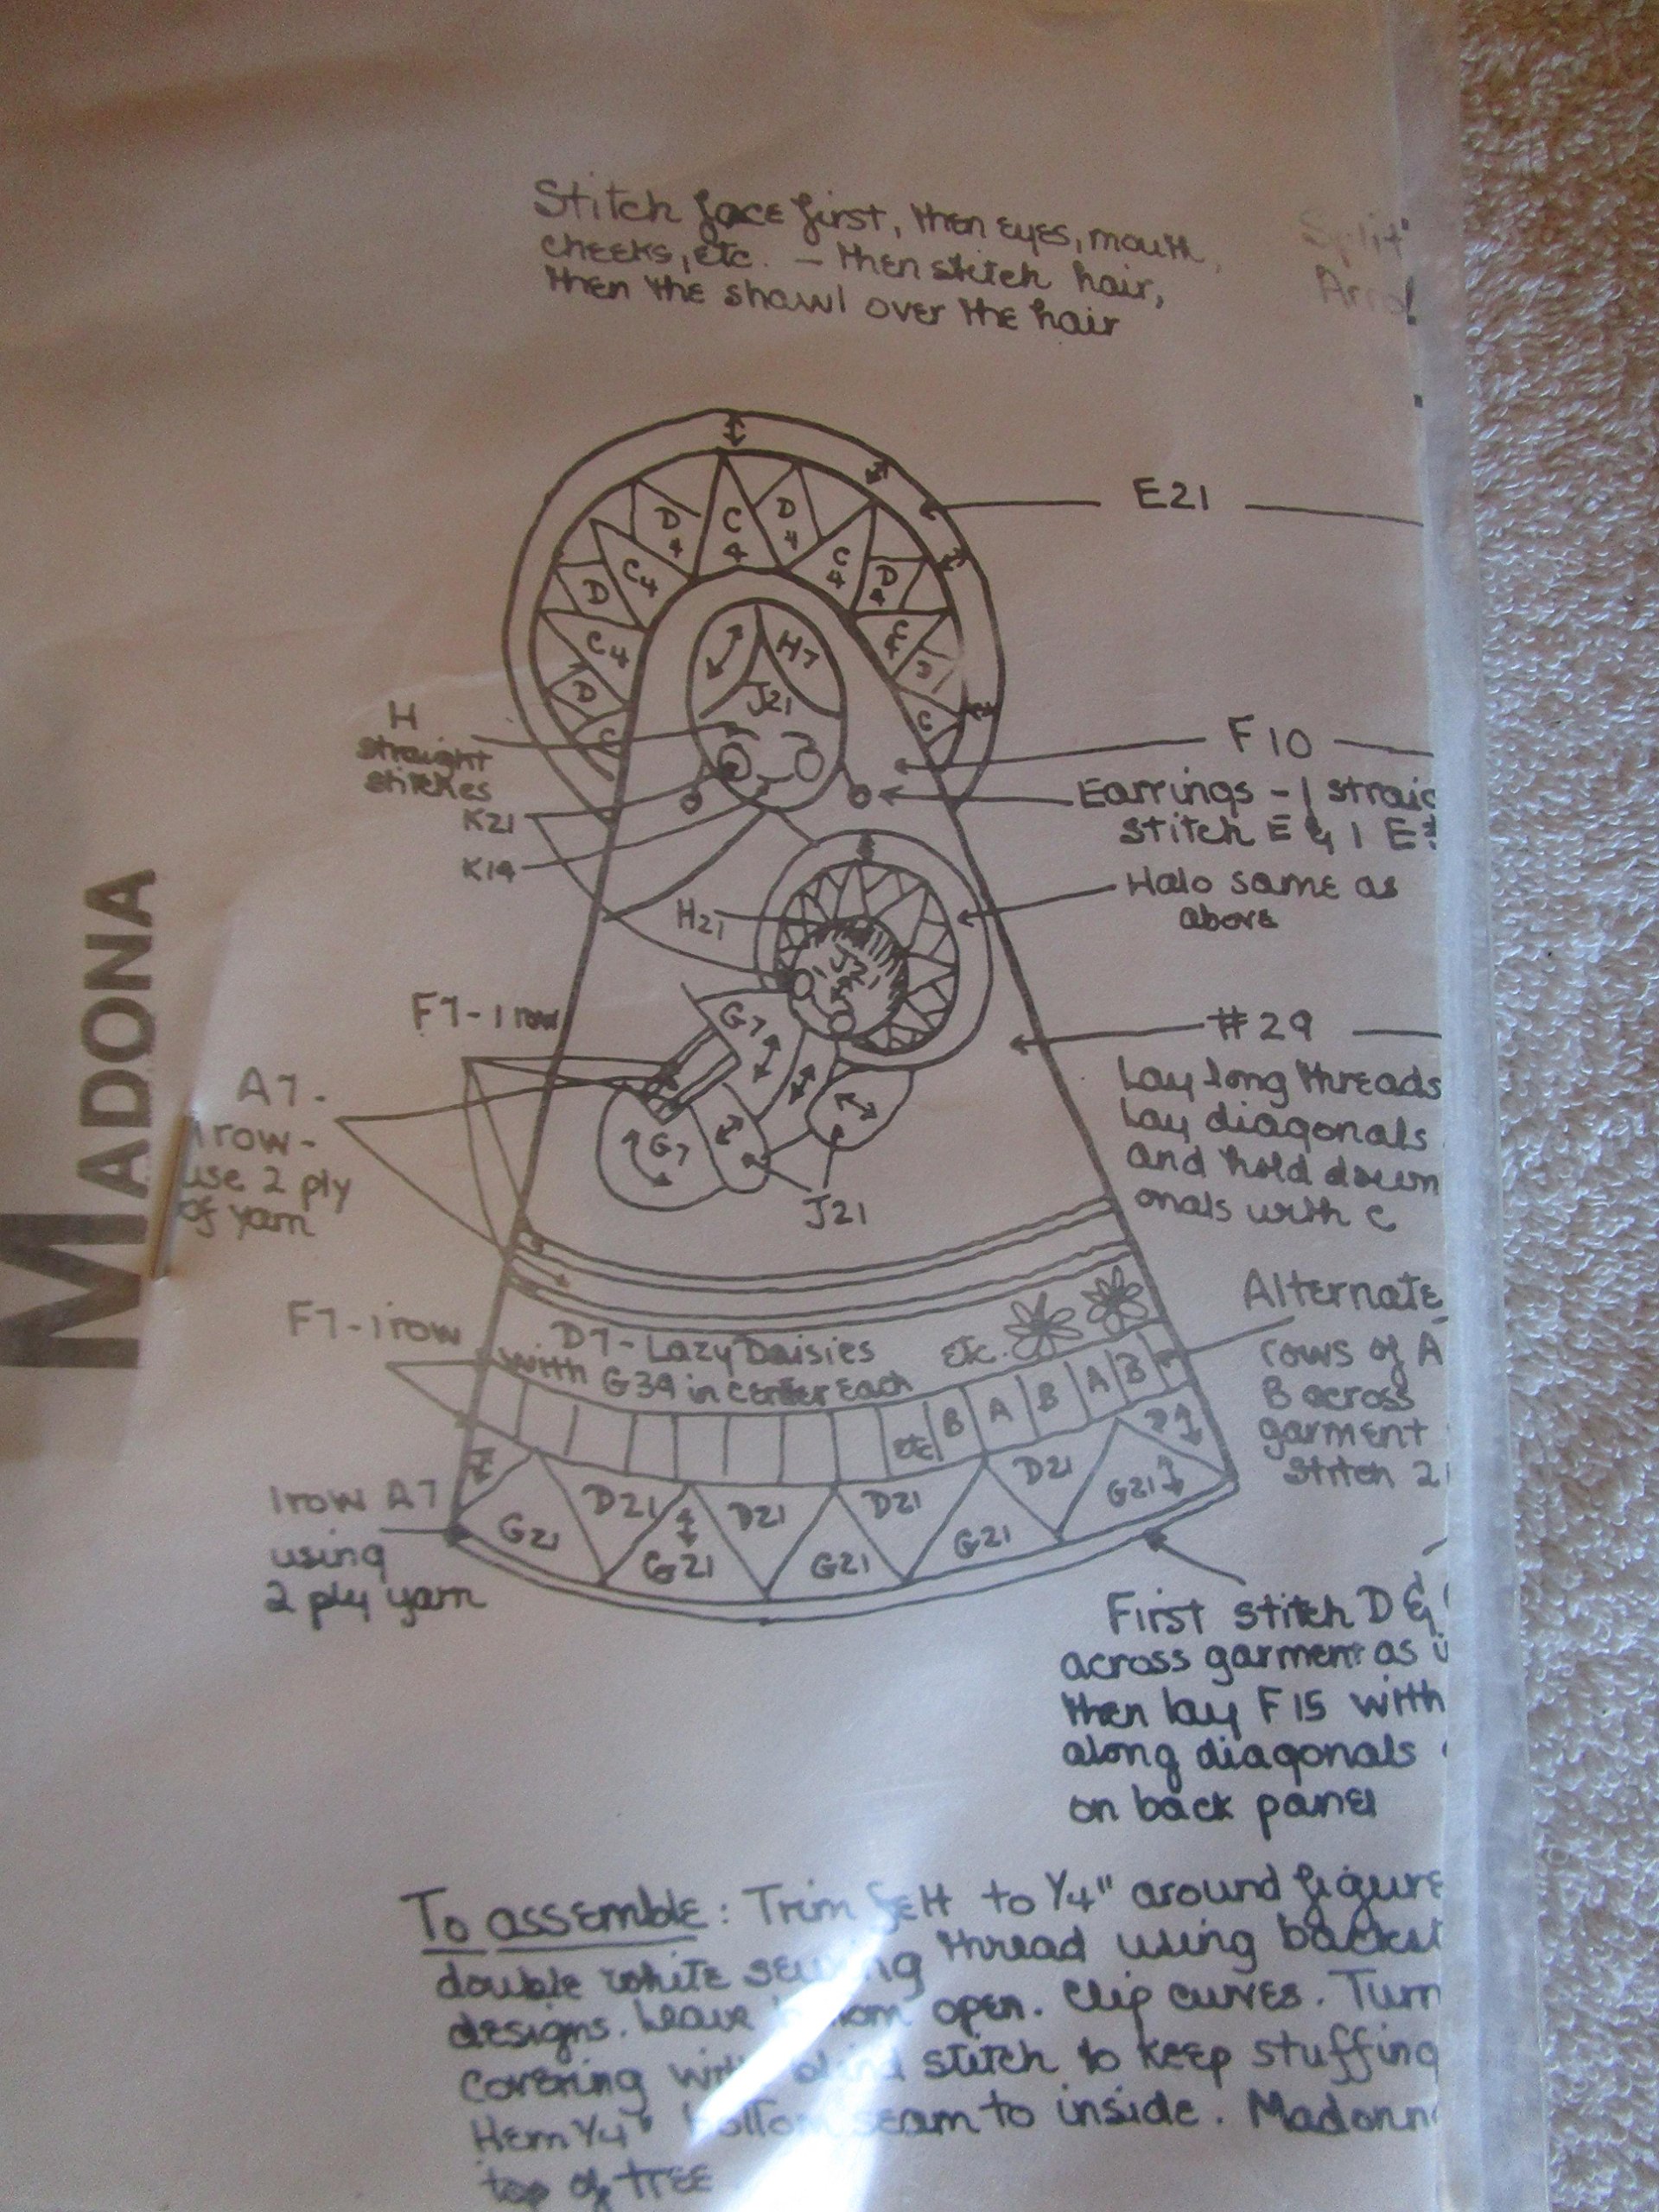 Stitch face first, then eyes, mouth,
cheeks, etc. – then stitch hair,
then the shawl over the hair
Split
E21
D 4
C 4
D 4
C4
C 4
D 4
D
C4
C 4
D
D
C
C
H7
J21
H
straight
stitches
K21
K19
F10
Earrings - 1
stitch E & 1 E
Halo same as
above
H21
J21
MADONA
F7-1 row
G7
A7-
1 row-
use 2 ply
of yarn
G7
J21
#29
Lay long threads
Lay diagonals
and hold down
onals with C
F7-1 row
D7-Lazy Daisies
etc.
with G39 in center Each
etc B A B A B
Alternate
rows of A
B across
garment
Stitch 21
1 row A7
using
2 ply yarn
D21 D21 D21 D21 D
G21 G21 G21 G21 G21
First stitch D &
across garment as
then lay F15 with
along diagonals
on back panel
To assemble: Trim felt to 1/4" around figure
double white sewing thread using
designs. Leave bottom open. Clip curves. Turn
covering with blind stitch to keep stuffing
Hem 1/4" bottom seam to inside. Madonn
top of TREE